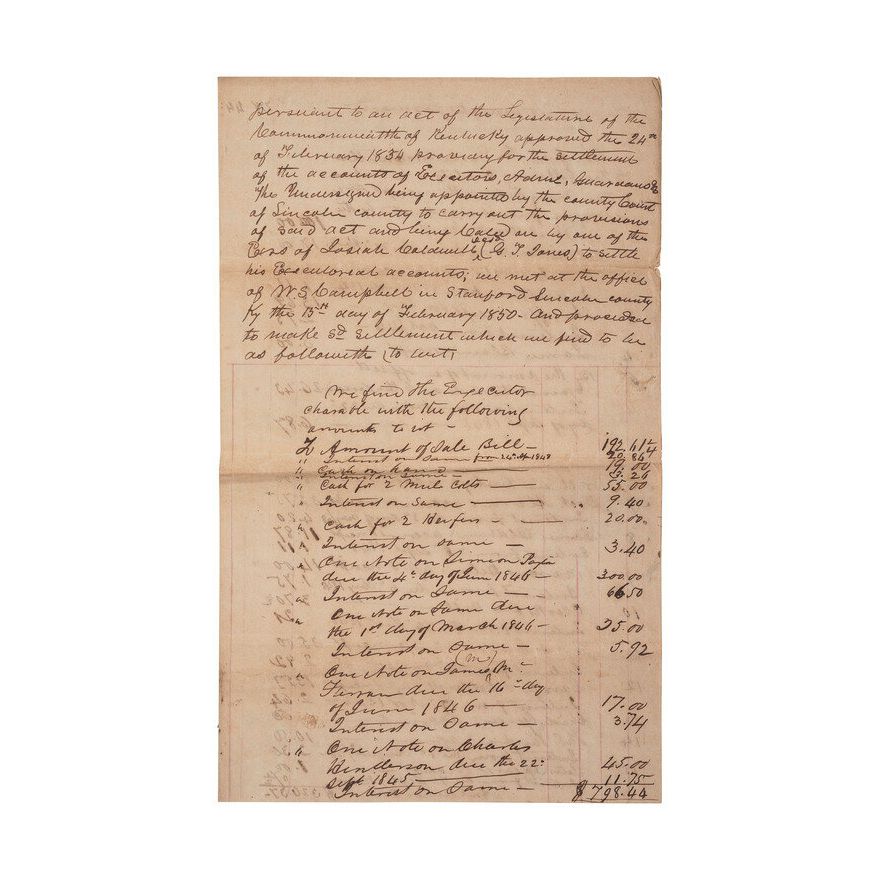 pursuant to an act of the Legislature of the
Commonwealth of Kentucky approved the 24th
of February 1834 providing for the settlement
of the accounts of Executors, Admrs, Guardians &c
The Undersigned being appointed by the county Court
of Lincoln county to carry out the provisions
of said act and being Called on by one of the
Exrs of Josiah Caldwell, decd (G. T. Jones) to settle
his Executoreal accounts, we met at the office
of W S Campbell in Stanford Lincoln county
Ky the 15th day of February 1850 - and proceeded
to make sd settlement which we find to be
as followeth (to wit)
We find the Executor
charable with the following
amounts to wit -
To Amount of Sale Bill - 192.61 1/4
" Interest on Same from 24th 1848 20.86
" Cash on hand - 19.00
" Interest on Same - 3.26
" Cash for 2 Mule Colts - 55.00
" Interest on Same - 9.40
" Cash for 2 Heifers - 20.00
" Interest on Same - 3.40
" One Note on Simeon
due the 4th day of June 1846 - 300.00
" Interest on Same - 66.50
" One Note on Same due
the 1st day of March 1846 - 25.00
Interest on Same - 5.92
One Note on James (M) Mc
Ferran due the 16th day
of June 1846 - 17.00
Interest on Same - 3.74
" One Note on Charles
Henderson due the 22d
Sept 1845 45.00
Interest on Same - 11.75
$798.44